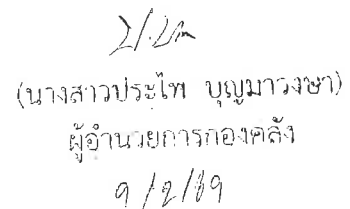 (นางสาวประไพ บุญมาวงษา)
ผู้อำนวยการกองคลัง
9/2/69